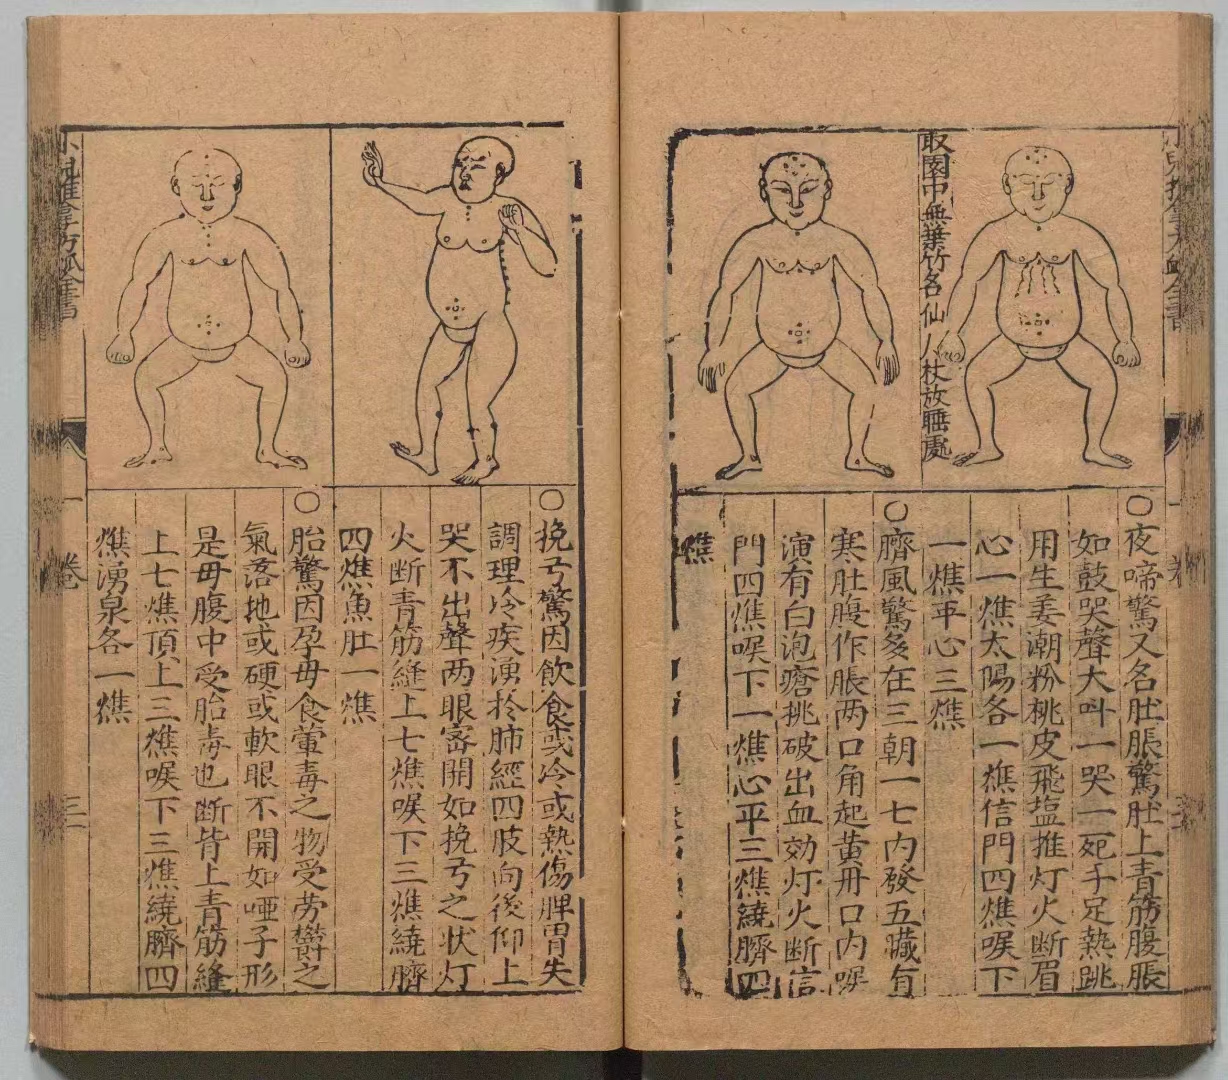 取園中無葉竹名仙人杖放睡處
○夜啼驚又名肚脹驚肚上青筋腹脹
如鼓哭聲大叫一哭一死手足熱跳
用生姜潮粉桃皮飛塩推灯火断眉
心一燋太陽各一燋信門四燋喉下
一燋平心三燋
○臍風驚多在三朝一七内發五臟有
寒肚腹作脹两口角起黃丹口内喉
演有白泡瘡挑破出血効灯火断信
門四燋喉下一燋心平三燋繞臍四
燋
○挽弓驚因飲食或冷或熱傷脾胃失
調理冷疾湧於肺經四肢向後仰上
哭不出聲两眼密開如挽弓之状灯
火断青筋縫上七燋喉下三燋繞臍
四燋魚肚一燋
○胎驚因孕母食葷毒之物受劳欝之
氣落地或硬或軟眼不開如啞子形
是母腹中受胎毒也断背上青筋縫
上七燋頂上三燋喉下三燋繞臍四
燋湧泉各一燋
一卷
三